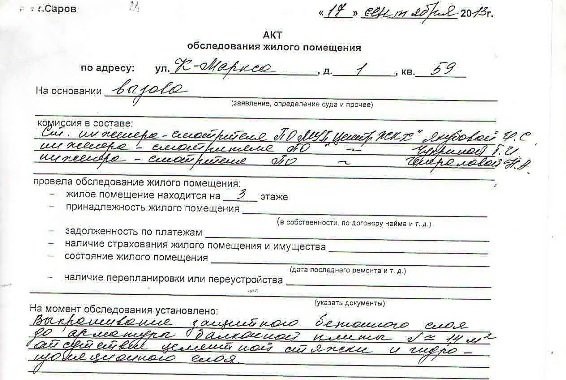 г.Саров «17» сентября 2013г.
АКТ
обследования жилого помещения
по адресу: ул. К-Маркса, д. 1, кв. 59
На основании вызова
(заявление, определение суда и прочее)
комиссия в составе:
Ст. инженера-смотрителя ПО МУП "Центр ЖКХ" И.С.
инженера-смотрителя ПО –"–
инженера-смотрителя ПО – Генераловой Н.А.
провела обследование жилого помещения:
– жилое помещение находится на 3 этаже
– принадлежность жилого помещения
(в собственности, по договору найма и т.д.)
– задолженность по платежам
– наличие страхования жилого помещения и имущества
– состояние жилого помещения
(дата последнего ремонта и т.д.)
– наличие перепланировки или переустройства
(указать документы)
На момент обследования установлено:
Выкрашивание защитного бетонного слоя
до арматуры балконной плиты S≈14 м²
отсутствие цементной стяжки и гидро-
изоляционного слоя.